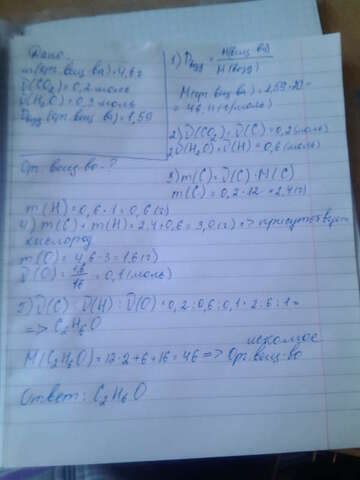 Дано:
m(орг. вещ-ва)=4,6г
ν(CO₂)=0,2 моль
ν(H₂O)=0,3 моль
Dвозд (орг. вещ-ва)=1,59
Орг вещ-во-?
1) Dвозд = M(вещ-ва) / M(возд)
M(орг. вещ-ва)=1,59·29=
=46,11(г/моль)
2) ν(CO₂)=ν(C)=0,2(моль)
2ν(H₂O)=ν(H)=0,6(моль)
3) m(C)=ν(C)·M(C)
m(C)=0,2·12=2,4(г)
m(H)=0,6·1=0,6(г)
4) m(C)+m(H)=2,4+0,6=3,0(г)=> присутствует
кислород
m(O)=4,6-3=1,6(г)
ν(O)=1,6/16=0,1(моль)
5) ν(C):ν(H):ν(O)=0,2:0,6:0,1=2:6:1=
=> C₂H₆O
M(C₂H₆O)=12·2+6+16=46=> искомое
Орг. вещ-во
Ответ: C₂H₆O